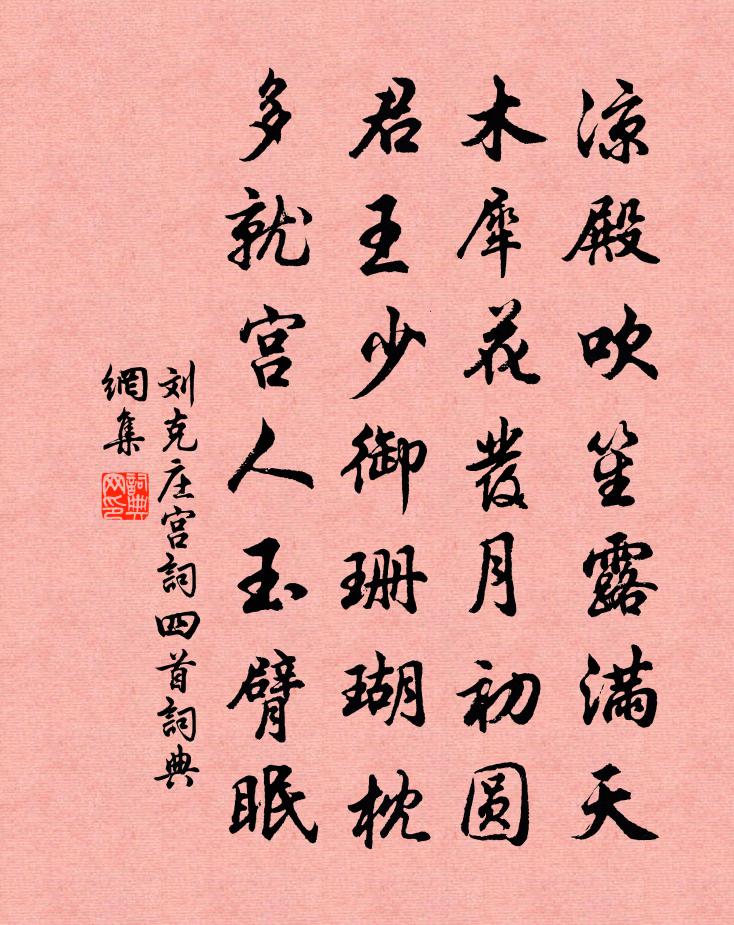 凉殿吹笙露满天
木犀花發月初圆
君王少御珊瑚枕
多就宫人玉臂眠
刘克庄宫詞四首詞典
網集
詞典
网印